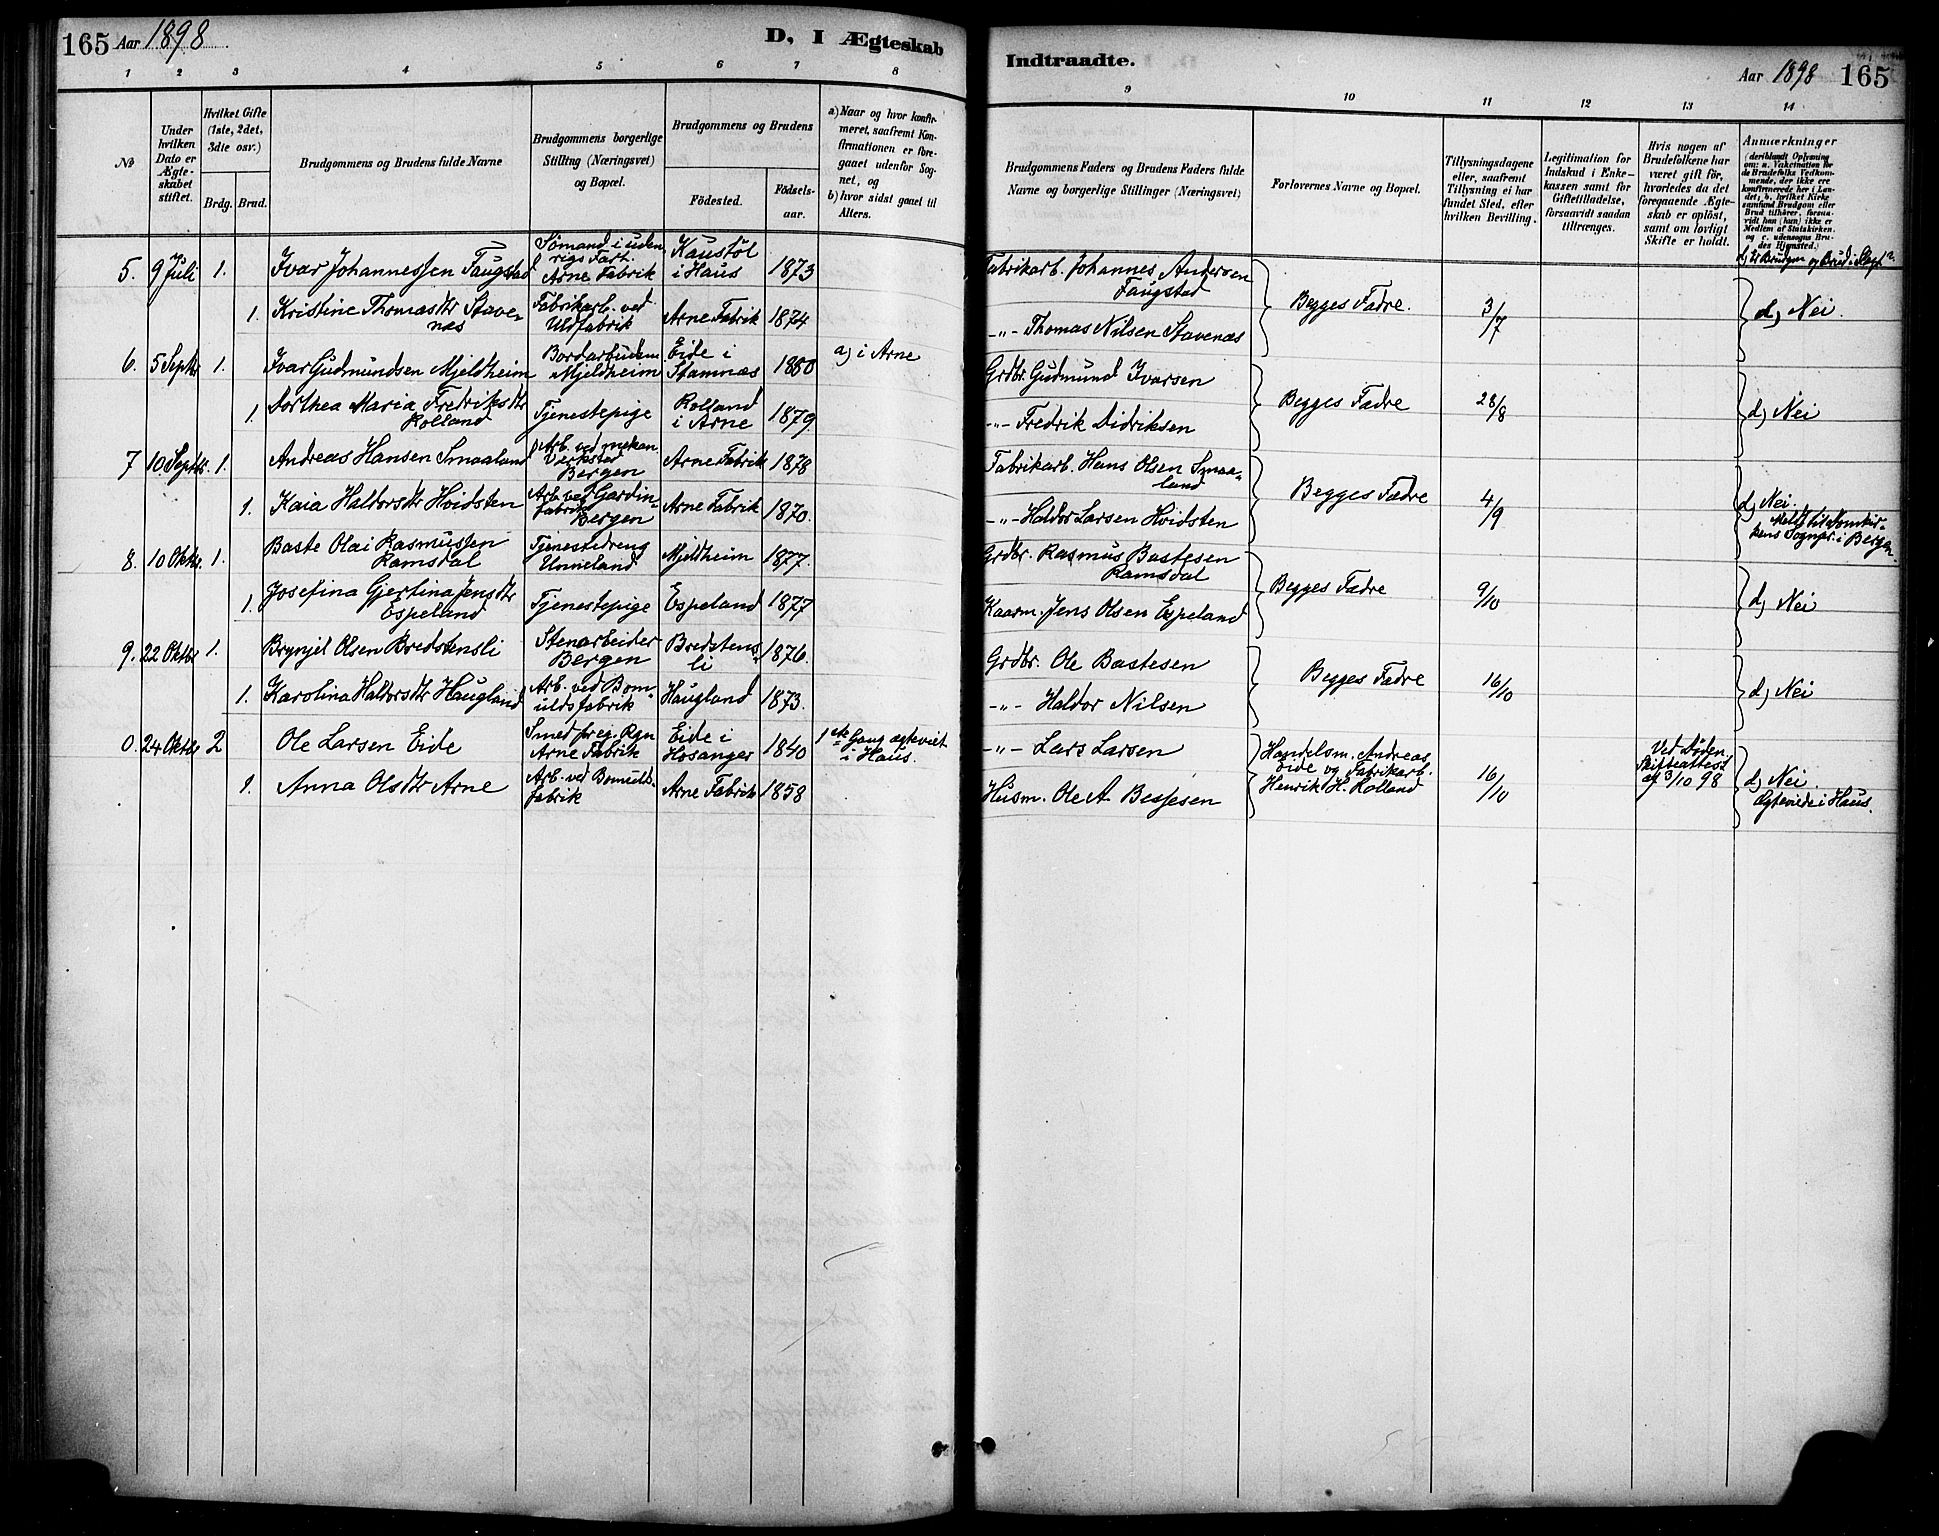 165 Aar 1898
D, I Ægteskab
1 2 3 4 5 6 7 8
No
Under hvilken Dato er Ægteskabet stiftet.
Hvilket Gifte (1ste, 2det, 3die osv.)
Brdg. Brud.
Brudgommens og Brudens fulde Navne
Brudgommens borgerlige Stilling (Næringsvei) og Bopæl.
Brudgommens og Brudens
Födested.
Födselsaar.
a) Naar og hvor konfirmeret, saafremt Konfirmationen er foregaaet udenfor Sognet, og
b) hvor sidst gaaet til Alters.
5. 9 Juli 1. Ivar Johannessen Faugstad Sömand i udenrigs Fart. Arne Fabrik Kaustöl i Haus 1873
1. Kristine Thomasdtr Stavenæs Fabrikarb. ved Uldfabrik Arne Fabrik 1874
6. 5 Septbr 1. Ivar Gudmundsen Mjeldheim Mjeldheim Eide i Stamnæs 1880 a) i Arne
1. Dorthea Maria Fredriksdtr Rolland Tjenestepige Rolland i Arne 1879
7 10 Septbr. 1. Andreas Hansen Smaaland Arb. ved mekan. Verksted Bergen Arne Fabrik 1878
1. Kaia Haldorsdtr Hvidsten Arb. ved Gardinfabrik Bergen Arne Fabrik 1870.
8. 10 Oktbr. 1. Baste Olai Rasmussen Ramsdal Tjenestedreng Unneland Mjeldheim 1877.
1. Josefina Gjertina Jensdtr Espeland Tjenestepige Espeland 1877
9. 22 Oktbr 1. Brynjel Olsen Bredstensli Stenarbeider Bergen Bredstensli 1876.
1. Karolina Haldorsdtr Haugland Arb. ved Bomuldsfabrik Haugland 1873.
0. 24 Oktbr 2 Ole Larsen Eide Smed for eg. Rgn Arne Fabrik Eide i Hosanger 1840 1ste Gang ægteviet i Haus.
1. Anna Olsdtr Arne Arb. ved Bomuldsfabrik Arne Fabrik 1858
Indtraadte.
Aar 1898 165
9 10 11 12 13 14
Brudgommens Faders og Brudens Faders fulde Navne og borgerlige Stillinger (Næringsvei)
Forlovernes Navne og Bopæl.
Tillysningsdagene eller, saafremt Tillysning ei har fundet Sted, efter hvilken Bevilling.
Legitimation for Indskud i Enkekassen samt for Giftetilladelse, forsaavidt saadan tiltrænges.
Hvis nogen af Brudefolkene har været gift før, hvorledes da det foregaaende Ægteskab er oplöst, samt om lovligt Skifte er holdt.
Anmærkninger
(deriblandt Oplysning om: a. Vakcination for de Brudefolks Vedkommende, der ikke ere konfirmerede her i Landet, b. hvilket Kirkesamfund Brudgom eller Brud tilhörer, forsaavidt han (hun) ikke er Medlem af Statskirken, og c. udensogns Brudes Hjemsted.)
d) Er Brudgom og Brud i Slægt?
Fabrikarb. Johannes Andersen Faugstad
-"- Thomas Nilsen Stavenæs
Begges Fædre. 3/7 d) Nei.
Grdbr. Gudmund Ivarsen
-"- Fredrik Didriksen
Begges Fædre 28/8 d) Nei
Fabrikarb. Hans Olsen Smaaland
-"- Haldor Larsen Hvidsten
Begges Fædre 4/9 d) Nei. Meldt til Domkirkens Sognepr. i Bergen
Grdbr. Rasmus Bastesen Ramsdal
Kaarm. Jens Olsen Espeland
Begges Fædre 9/10 d) Nei
Grdbr. Ole Bastesen
-"- Haldor Nilsen
Begges Fædre 16/10 d) Nei
-"- Lars Larsen
Husm. Ole A Bessesen
Handelsm. Andreas Eide og Fabrikarb. Henrik H. Rolland 16/10 Ved Döden. Skifteattest af 3/10 98 d) Nei. Ægteviede i Haus.